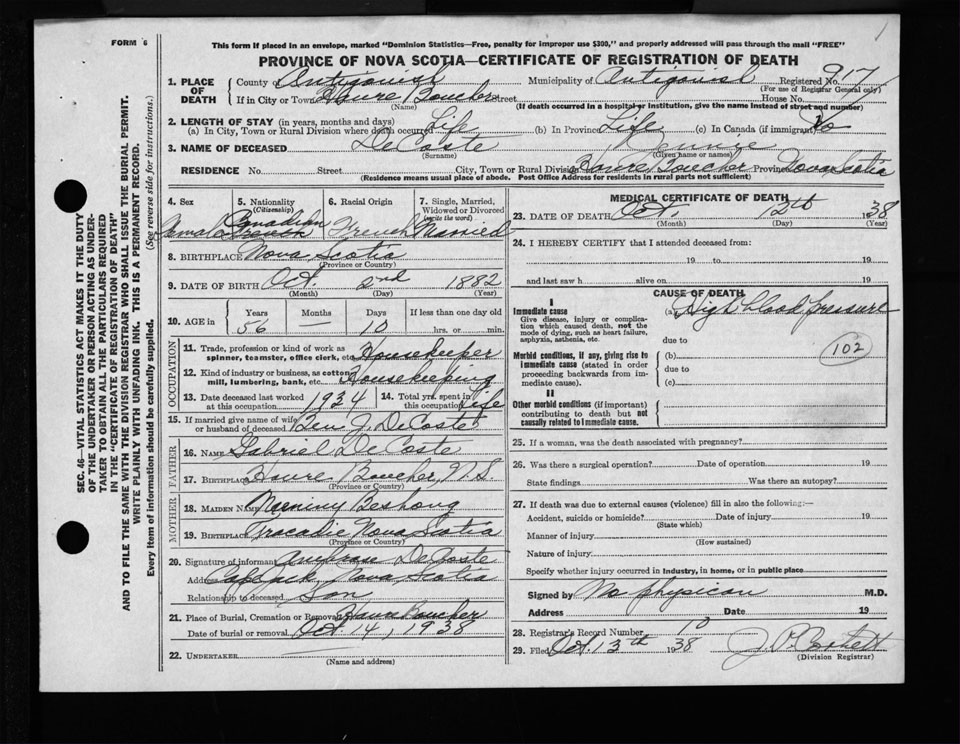 FORM 6
This form if placed in an envelope, marked "Dominion Statistics—Free, penalty for improper use $300," and properly addressed will pass through the mail "FREE"
PROVINCE OF NOVA SCOTIA—CERTIFICATE OF REGISTRATION OF DEATH
1. PLACE OF DEATH County of Antigonish Municipality of Antigonish Registered No. 917
(For use of Registrar General only)
If in City or Town Havre Boucher Street House No.
(Name) (If death occurred in a hospital or institution, give the name instead of street and number)
2. LENGTH OF STAY (in years, months and days)
(a) In City, Town or Rural Division where death occurred Life (b) In Province Life (c) In Canada (if immigrant)
3. NAME OF DECEASED DeCoste Jennie
(Surname) (Given name or names)
RESIDENCE No. Street City, Town or Rural Division Havre Boucher Province Nova Scotia
(Residence means usual place of abode. Post Office Address for residents in rural parts not sufficient)
4. Sex 5. Nationality (Citizenship) 6. Racial Origin 7. Single, Married, Widowed or Divorced (write the word)
Female Canadian French French Married
8. BIRTHPLACE Nova Scotia
(Province or Country)
9. DATE OF BIRTH Oct. 2nd 1882
(Month) (Day) (Year)
10. AGE in Years Months Days If less than one day old
56 — 10 hrs. or min.
OCCUPATION
11. Trade, profession or kind of work as spinner, teamster, office clerk, etc. Housekeeper
12. Kind of industry or business, as cotton mill, lumbering, bank, etc. Housekeeping
13. Date deceased last worked at this occupation 1934 14. Total yrs. spent in this occupation Life
15. If married give name of wife or husband of deceased Ben J. DeCoste
FATHER
16. NAME Gabriel DeCoste
17. BIRTHPLACE Havre Boucher, N.S.
(Province or Country)
MOTHER
18. MAIDEN NAME
19. BIRTHPLACE Tracadie Nova Scotia
(Province or Country)
20. Signature of informant DeCoste
Address Cape Jack, Nova Scotia
Relationship to deceased Son
21. Place of Burial, Cremation or Removal Havre Boucher
Date of burial or removal Oct. 14, 1938
22. UNDERTAKER
(Name and address)
MEDICAL CERTIFICATE OF DEATH
23. DATE OF DEATH Oct. 12th 1938
(Month) (Day) (Year)
24. I HEREBY CERTIFY that I attended deceased from:
19 to 19
and last saw h alive on 19
CAUSE OF DEATH
I
Immediate cause (a) High blood pressure
Give disease, injury or complication which caused death, not the mode of dying, such as heart failure, asphyxia, asthenia, etc.
due to
102
Morbid conditions, if any, giving rise to immediate cause (stated in order proceeding backwards from immediate cause).
(b)
due to
(c)
II
Other morbid conditions (if important) contributing to death but not causally related to immediate cause.
25. If a woman, was the death associated with pregnancy?
26. Was there a surgical operation? Date of operation 19
State findings Was there an autopsy?
27. If death was due to external causes (violence) fill in also the following:—
Accident, suicide or homicide? Date of injury 19
(State which)
Manner of injury
(How sustained)
Nature of injury
Specify whether injury occurred in industry, in home, or in public place
Signed by No physician M.D.
Address Date 19
28. Registrar's Record Number 10
29. Filed Oct. 13th 1938
(Division Registrar)
SEC. 46—VITAL STATISTICS ACT MAKES IT THE DUTY OF THE UNDERTAKER OR PERSON ACTING AS UNDERTAKER TO OBTAIN ALL THE PARTICULARS REQUIRED IN THE "CERTIFICATE OF REGISTRATION OF DEATH" AND TO FILE THE SAME WITH THE DIVISION REGISTRAR WHO SHALL ISSUE THE BURIAL PERMIT.
WRITE PLAINLY WITH UNFADING INK. THIS IS A PERMANENT RECORD.
Every item of information should be carefully supplied. (See reverse side for instructions.)